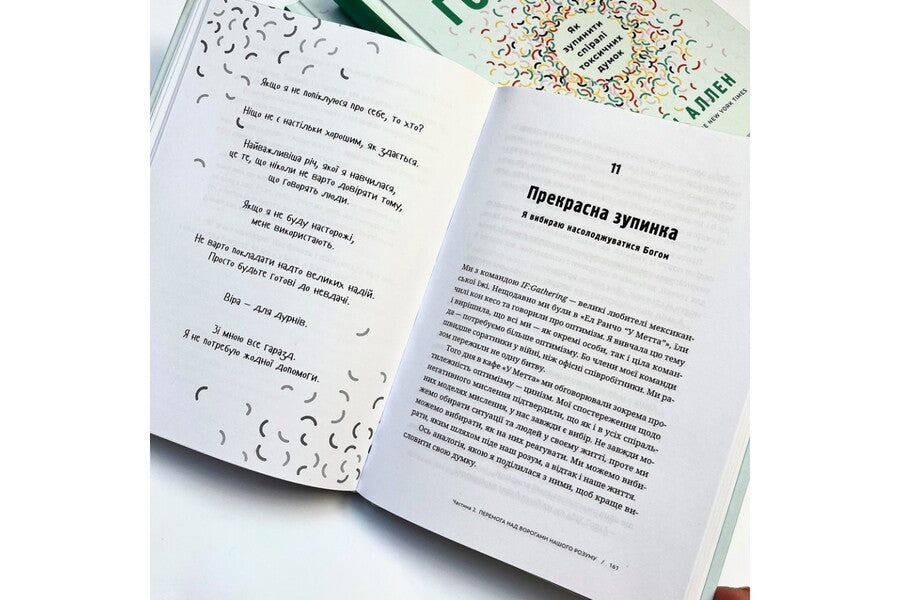 Як
зупинити
спіралі
токсичних
думок
АЛЛЕН
NEW YORK TIMES
Якщо я не попіклуюся про себе, то хто?
Ніщо не є настільки хорошим, як здається.
Найважливіша річ, якої я навчилася,
це те, що ніколи не варто довіряти тому,
що говорять люди.
Якщо я не буду насторожі,
мене використають.
Не варто покладати надто великих надій.
Просто будьте готові до невдачі.
Віра — для дурнів.
Зі мною все гаразд.
Я не потребую жодної допомоги.
11
Прекрасна зупинка
Я вибираю насолоджуватися Богом
Ми з командою IF:Gathering — великі любителі мексикан-
ської їжі. Нещодавно ми були в «Ел Ранчо “У Метта”», їли
чилі кон кесо та говорили про оптимізм. Я вивчала цю тему
і вирішила, що всі ми — як окремі особи, так і ціла коман-
да — потребуємо більше оптимізму. Бо члени моєї команди
швидше соратники у війні, ніж офісні співробітники. Ми ра-
зом пережили не одну битву.
Того дня в кафе «У Метта» ми обговорювали зокрема про-
тилежність оптимізму — цинізм. Мої спостереження щодо
негативного мислення підтвердили, що як і в усіх спіраль-
них моделях мислення, у нас завжди є вибір. Не завжди мо-
жемо обирати ситуації та людей у своєму житті, проте ми
можемо вибирати, як на них реагувати. Ми можемо виби-
рати, яким шляхом піде наш розум, а відтак і наше життя.
Ось аналогія, якою я поділилася з ними, щоб краще ви-
словити свою думку.
Частина 2. ПЕРЕМОГА НАД ВОРОГАМИ НАШОГО РОЗУМУ / 161